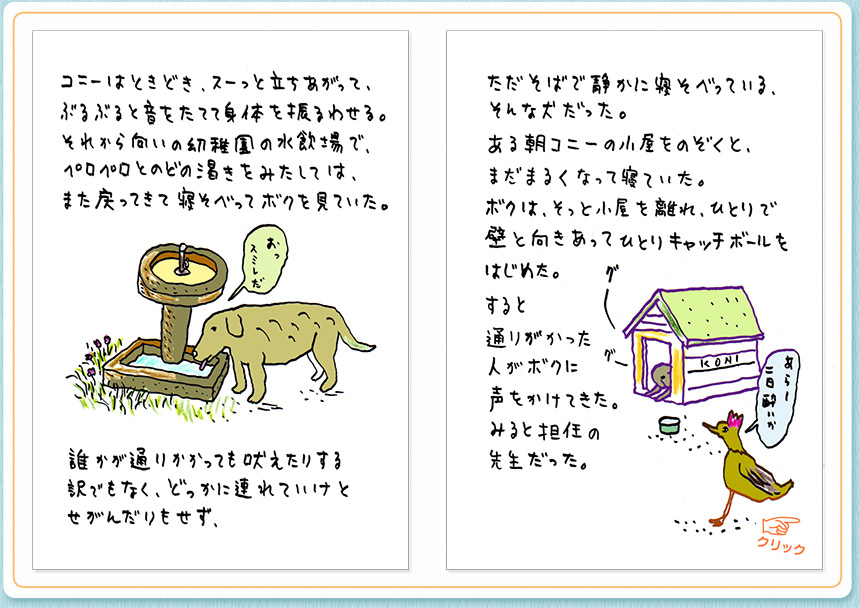 コニーはときどき、スーっと立ちあがって、
ぶるぶると音をたてて身体を振るわせる。
それから向いの幼稚園の水飲場で、
ペロペロとのどの渇きをみたしては、
また戻ってきて寝そべってボクを見ていた。
おっ
スミレだ
誰かが通りかかっても吠えたりする
訳でもなく、どっかに連れていけと
せがんだりもせず、
ただそばで静かに寝そべっている、
そんな犬だった。
ある朝コニーの小屋をのぞくと、
まだまるくなって寝ていた。
ボクは、そっと小屋を離れ、ひとりで
壁と向きあってひとりキャッチボールを
はじめた。
すると
通りがかった
人がボクに
声をかけてきた。
みると担任の
先生だった。
グ
グ
KONI
あらー
二日酔いか
クリック